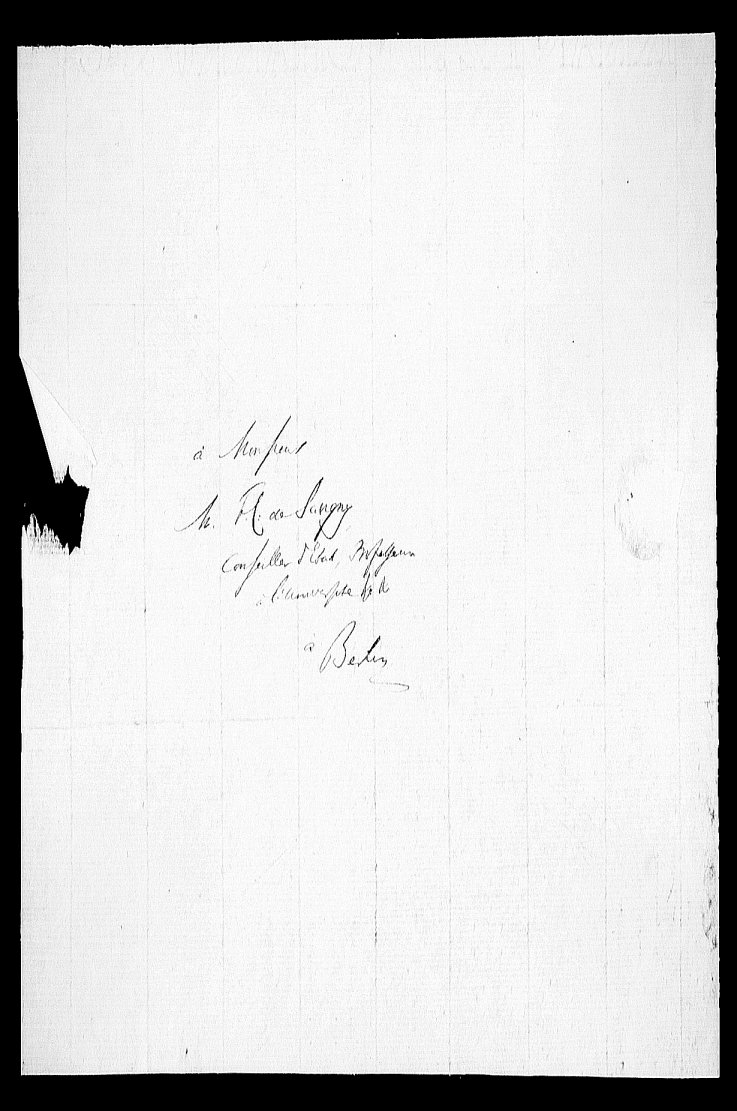 à Monsieur
M. F. C. de Savigny
Conseiller d'Etat, Professeur
à l'université
à Berlin